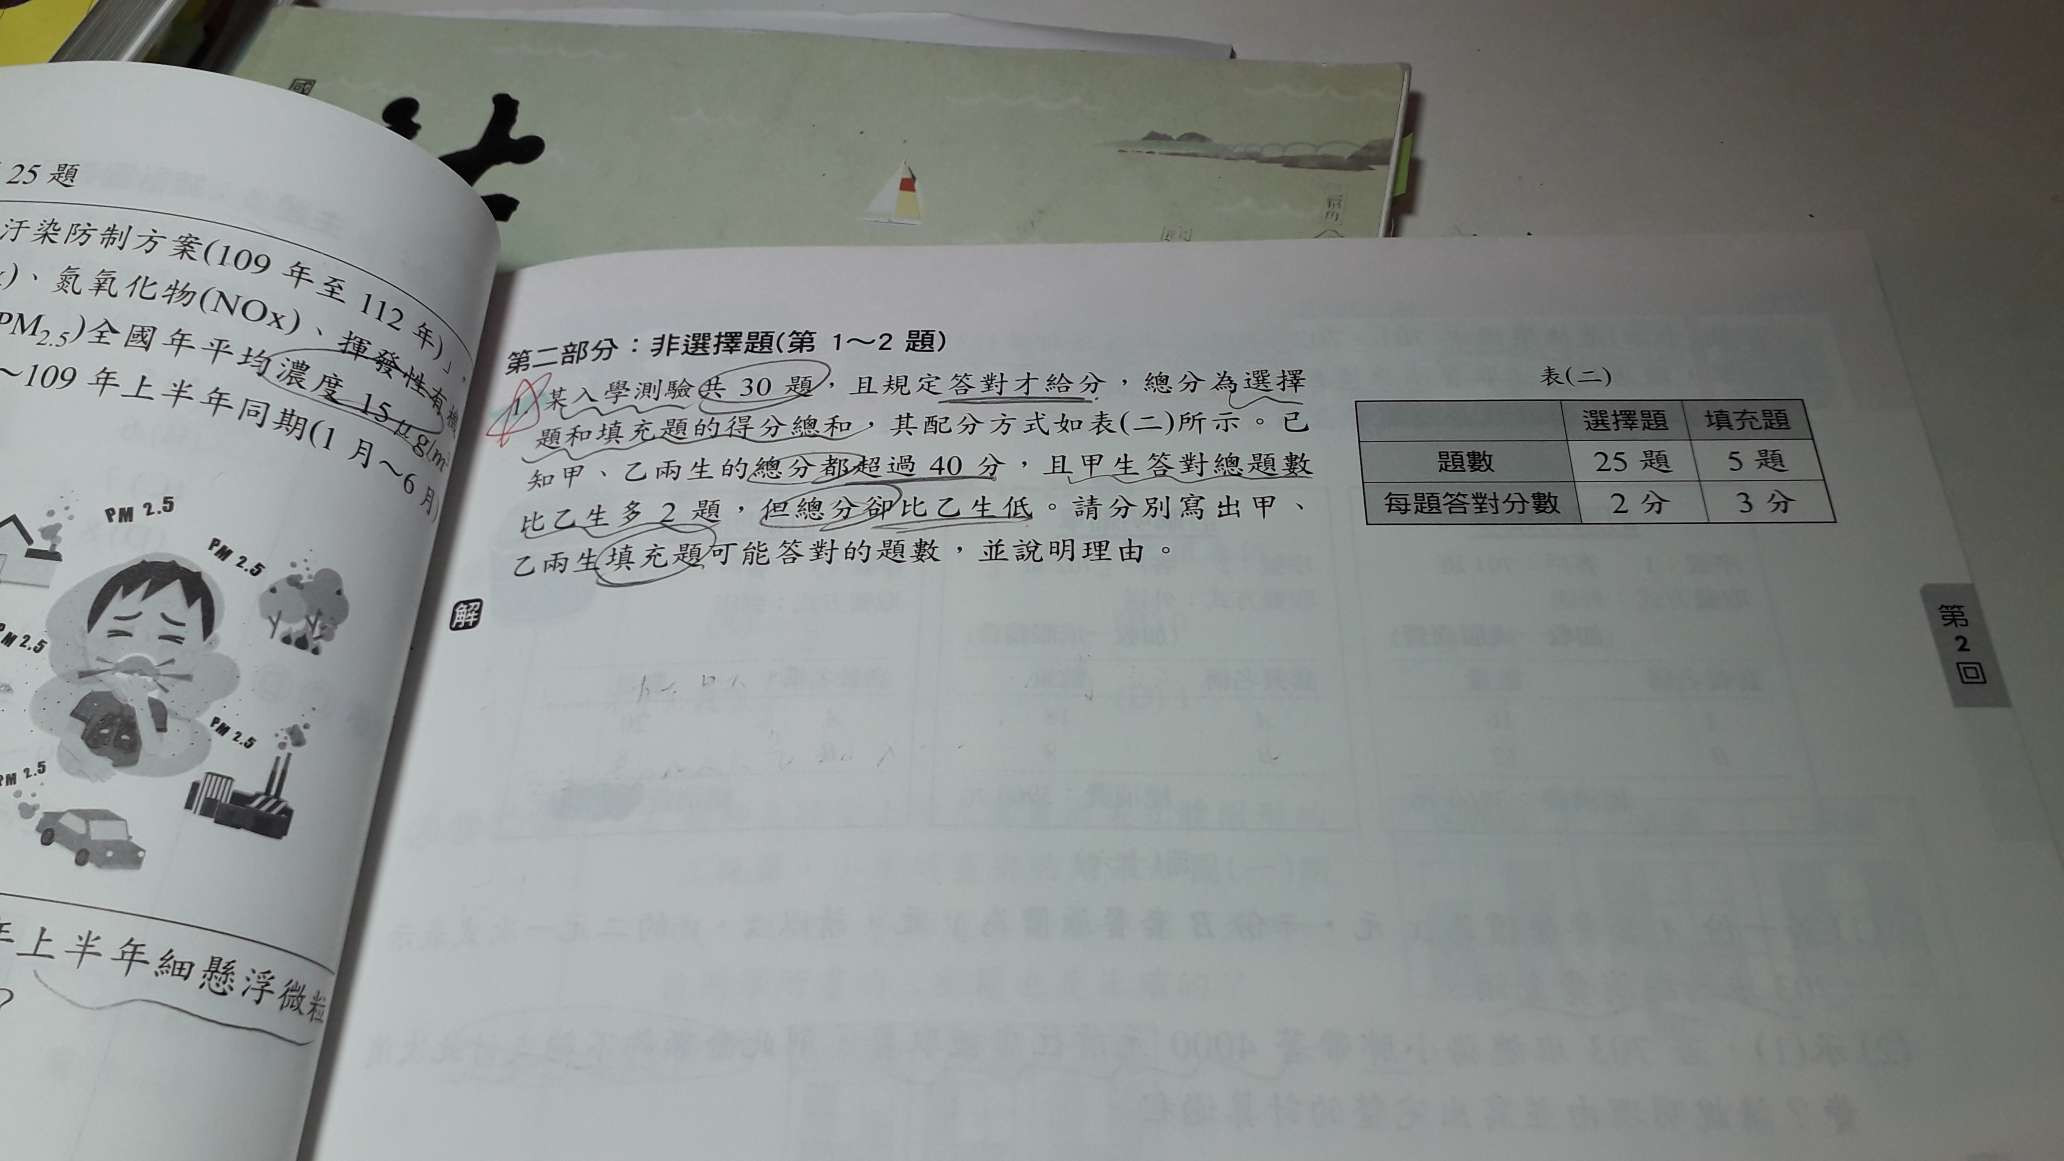 國
25 題
汙染防制方案(109 年至 112 年)」,
)、氮氧化物(NOx)、揮發性有機
PM2.5)全國年平均濃度 15 μg/m³
~109 年上半年同期(1 月~6 月)
PM 2.5
PM 2.5
PM 2.5
PM 2.5
PM 2.5
年上半年細懸浮微粒
?
第二部分:非選擇題(第 1~2 題)
1. 某入學測驗共 30 題,且規定答對才給分,總分為選擇
題和填充題的得分總和,其配分方式如表(二)所示。已
知甲、乙兩生的總分都超過 40 分,且甲生答對總題數
比乙生多 2 題,但總分卻比乙生低。請分別寫出甲、
乙兩生填充題可能答對的題數,並說明理由。
表(二)
選擇題 填充題
題數 25 題 5 題
每題答對分數 2 分 3 分
解
第2回